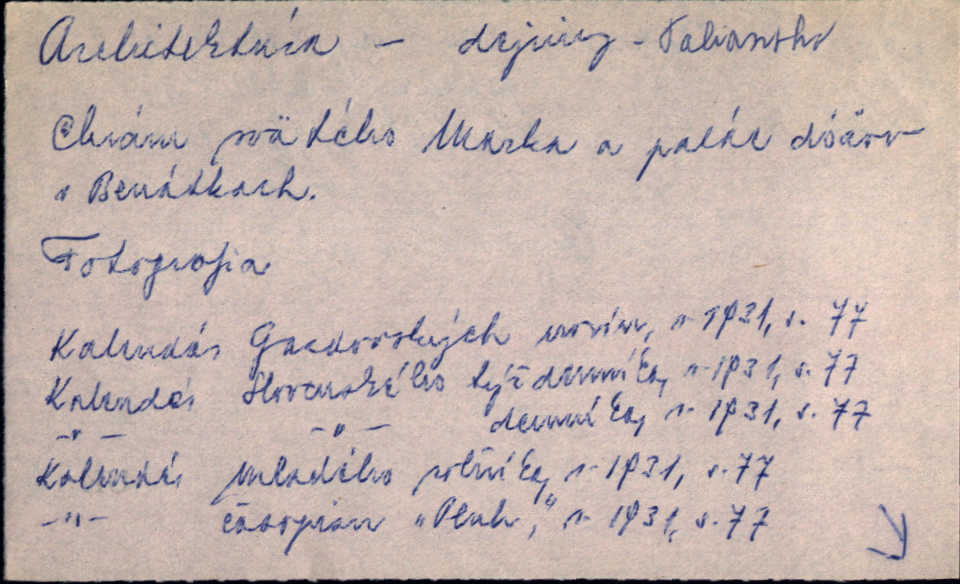 Architektúra - dejiny - Taliansko
Chrám svätého Marka a palác dóžov
v Benátkach.
Fotografia
Kalendár Gazdovských novín, r. 1931, s. 77
Kalendár Slovenského týždenníka, r. 1931, s. 77
-"- -"- denníka, r. 1931, s. 77
Kalendár mladého roľníka, r. 1931, s. 77
-"- časopisu "Pluh", r. 1931, s. 77